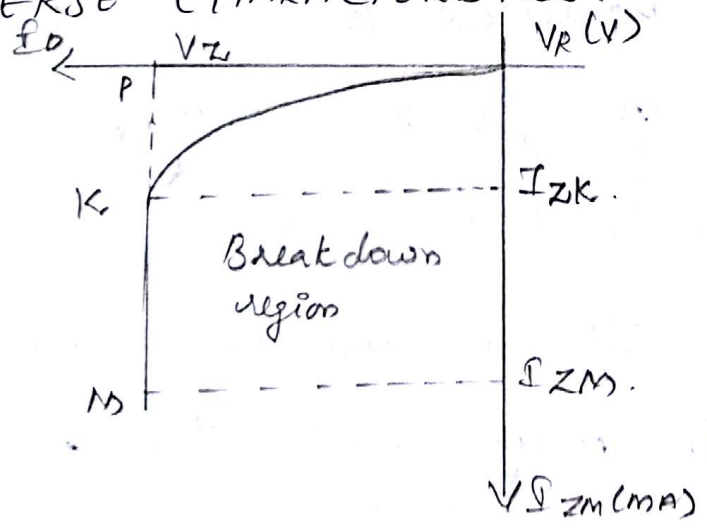 VR (V)
VZ
P
K
IZK.
Breakdown
region
M
IZM.
IZM (MA)